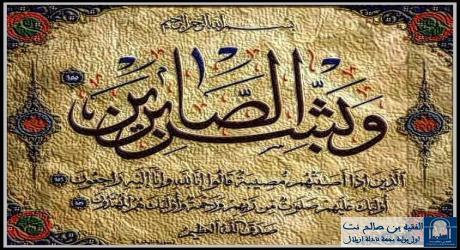 بسم الله الرحمن الرحيم
وبشر الصابرين
١٥٥
الذين اذا أصابتهم مصيبة قالوا إنا لله وإنا إليه راجعون ١٥٦
أولئك عليهم صلوات من ربهم ورحمة وأولئك هم المهتدون
صدق الله العظيم
الفقيه بن صالح نت